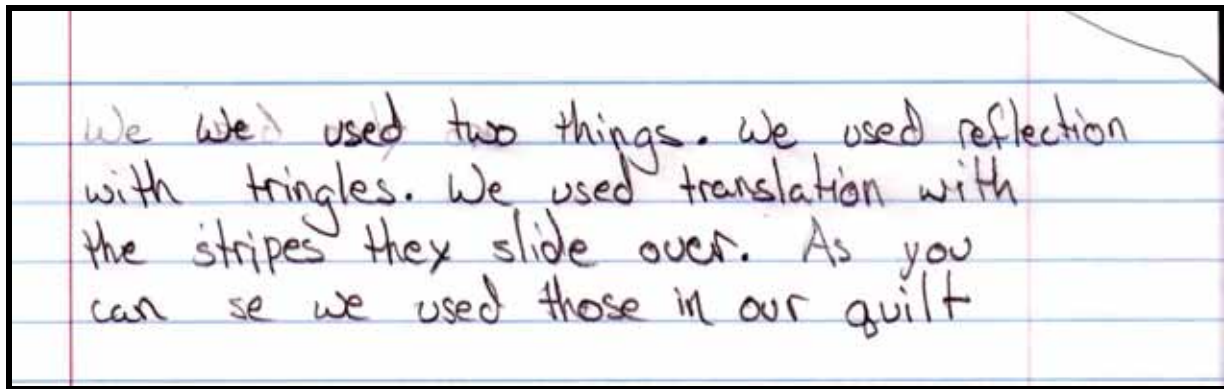 We we used two things. We used reflection
with tringles. We used translation with
the stripes they slide over. As you
can se we used those in our quilt